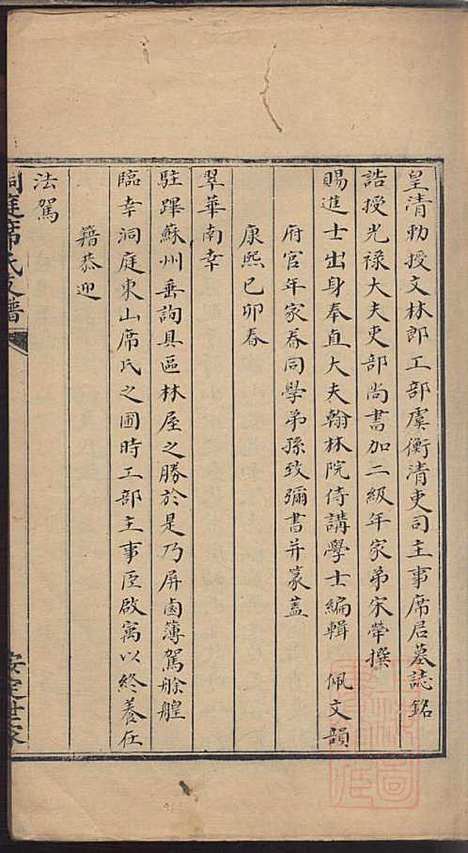 皇清勅授文林郎工部虞衡清吏司主事席君墓誌銘
誥授光祿大夫吏部尚書加二級年家弟宋犖撰
賜進士出身奉直大夫翰林院侍講學士編輯 佩文韻
府官年家眷同學弟孫致彌書并篆蓋
康熙己卯春
翠華南幸
駐蹕蘇州垂詢具區林屋之勝於是乃屏鹵簿駕艅艎
臨幸洞庭東山席氏之圃時工部主事臣啟寓以終養在
籍恭迎
法駕
洞庭席氏支譜
安定世家